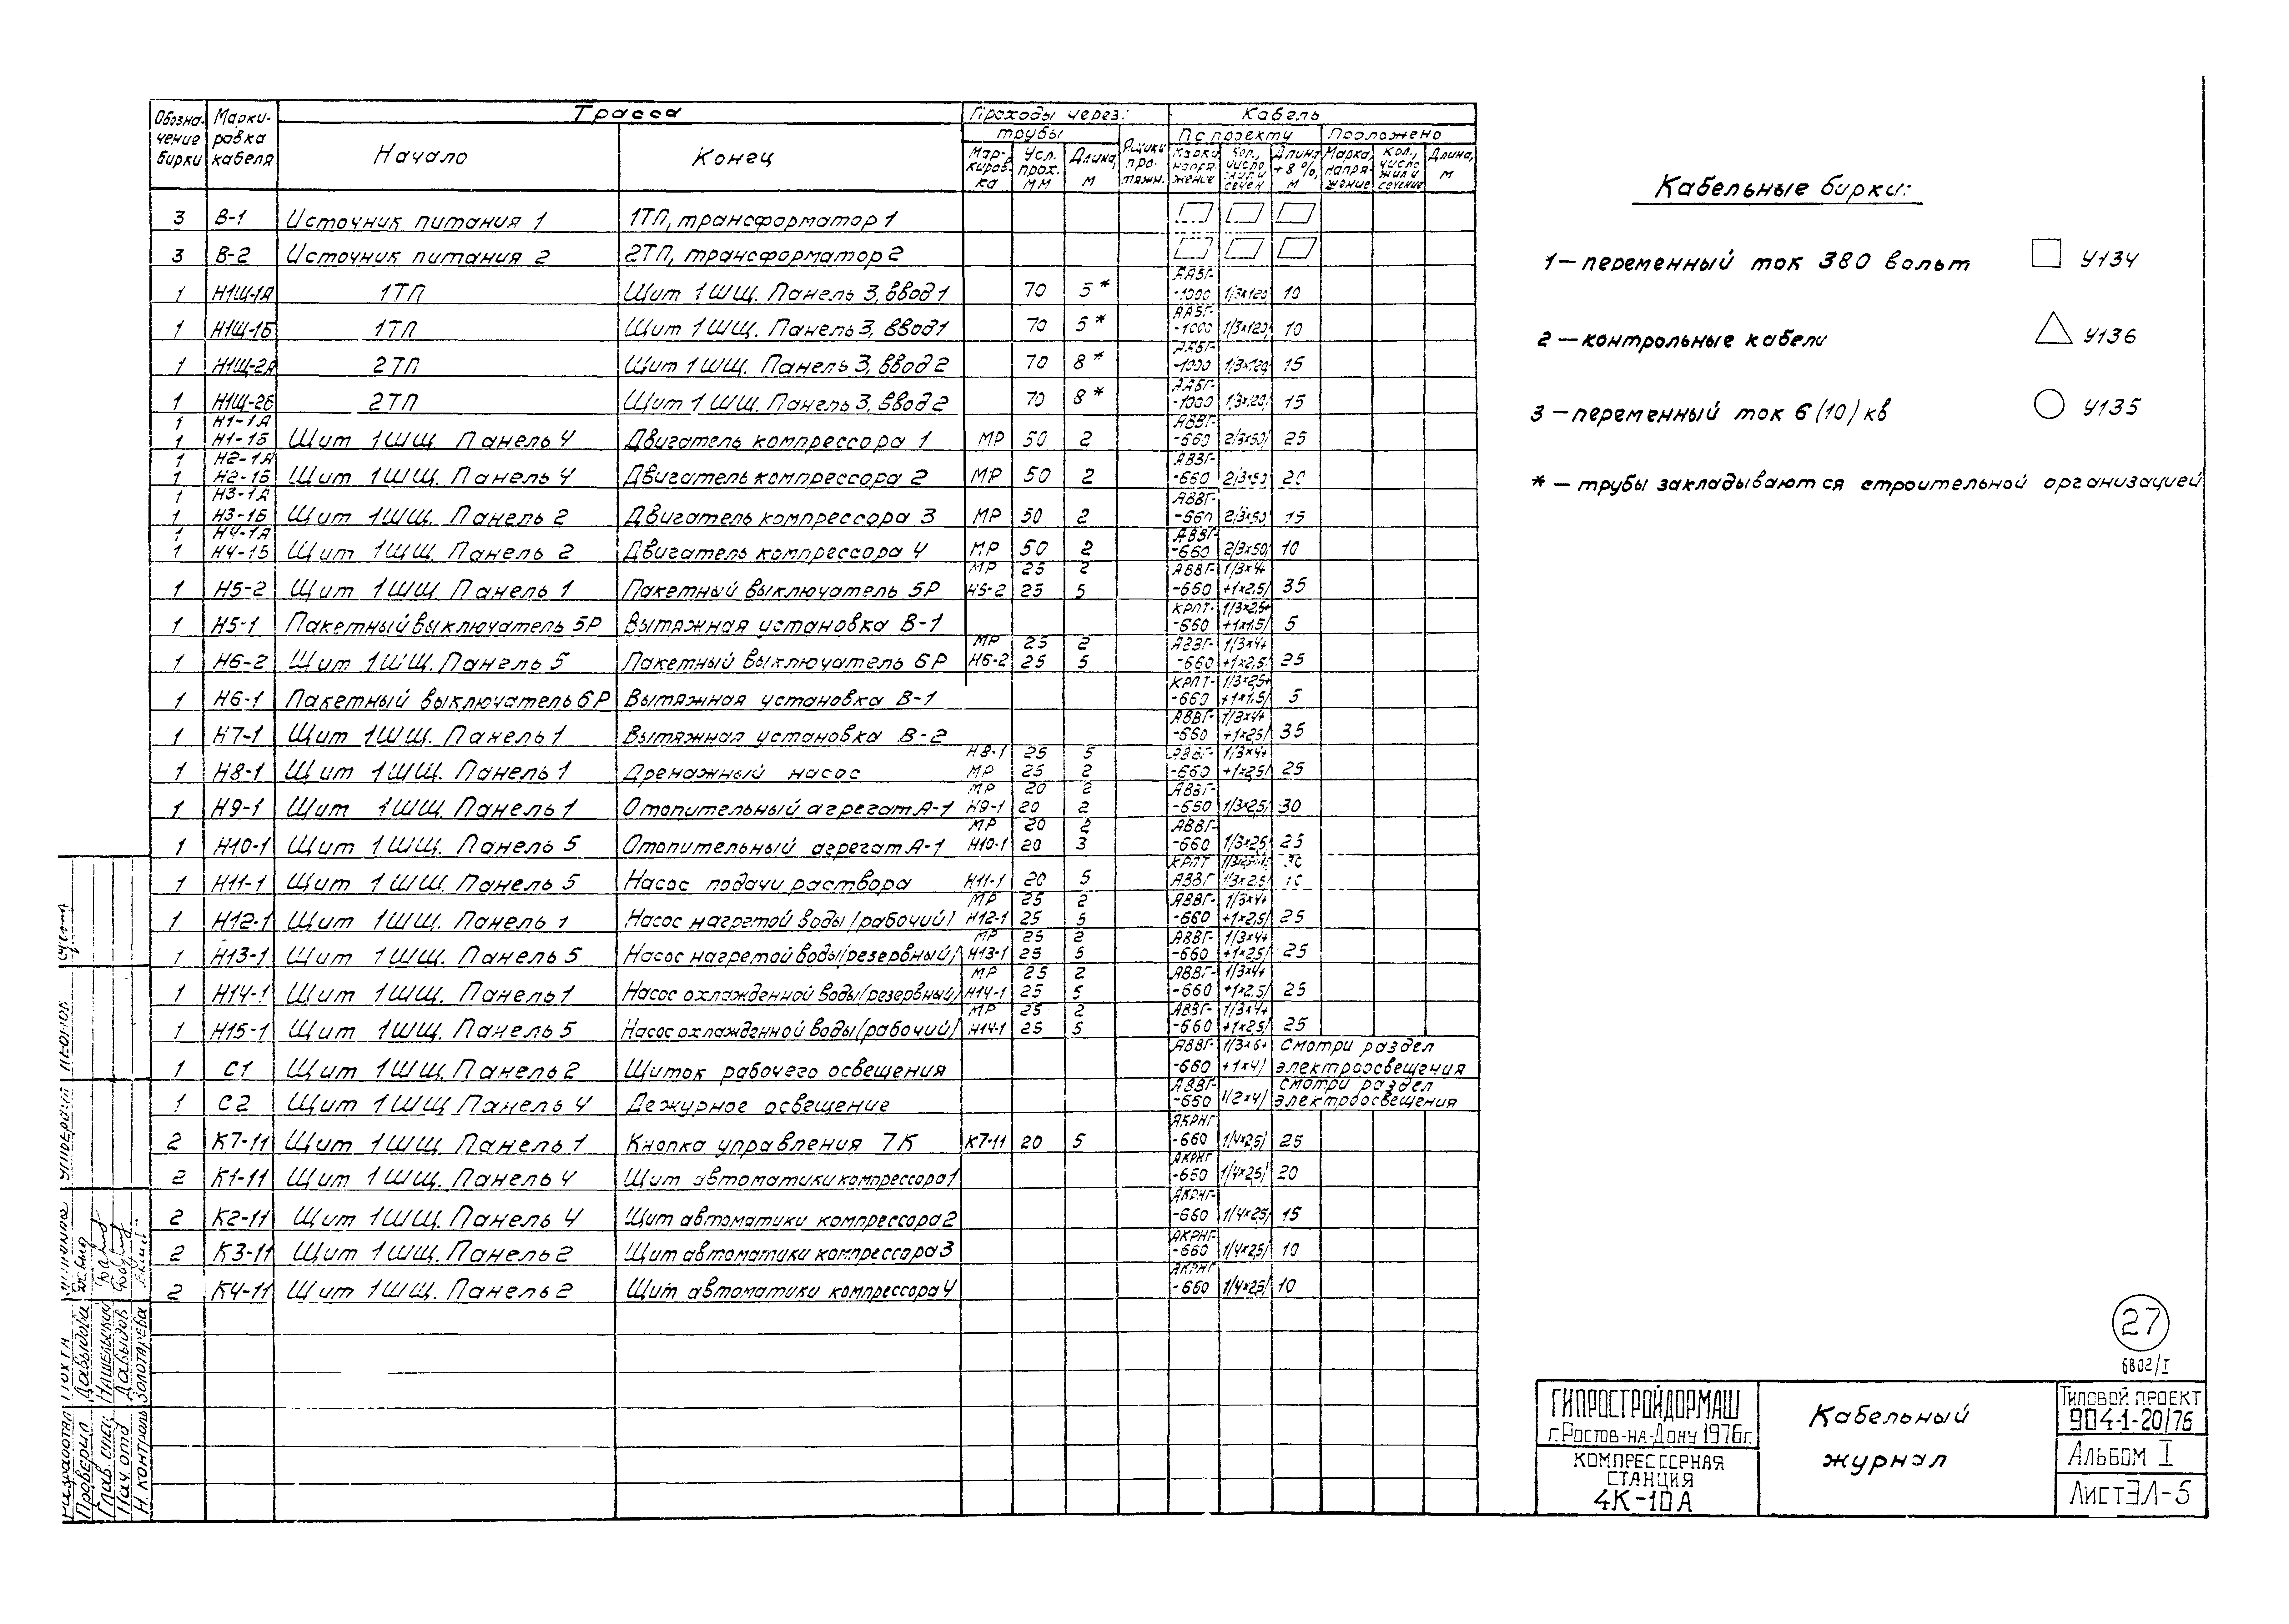 Обозначение бирки | Маркировка кабеля | Трасса | Проходы через: | Кабель
Начало | Конец | трубы | Ящики протяжн. | По проекту | Проложено
Маркировка | Усл. прох. мм | Длина, м | Марка, напряжение | Кол., число жил и сечен | Длина +8%, м | Марка, напряжение | Кол., число жил и сечение | Длина, м
3 В-1 Источник питания 1 1ТП, трансформатор 1
3 В-2 Источник питания 2 2ТП, трансформатор 2
1 Н1Щ-1А 1ТП Щит 1ШЩ. Панель 3, ввод 1 70 5* ААБГ-1000 1/3х120/ 10
1 Н1Щ-1Б 1ТП Щит 1ШЩ. Панель 3, ввод 1 70 5* ААБГ-1000 1/3х120/ 10
1 Н1Щ-2А 2ТП Щит 1ШЩ. Панель 3, ввод 2 70 8* ААБГ-1000 1/3х120/ 15
1 Н1Щ-2Б 2ТП Щит 1ШЩ. Панель 3, ввод 2 70 8* ААБГ-1000 1/3х120/ 15
1 Н1-1А
1 Н1-1Б Щит 1ШЩ Панель 4 Двигатель компрессора 1 МР 50 2 АВВГ-660 2/3х50/ 25
1 Н2-1А
1 Н2-1Б Щит 1ШЩ. Панель 4 Двигатель компрессора 2 МР 50 2 АВВГ-660 2/3х50 20
1 Н3-1А
1 Н3-1Б Щит 1ШЩ. Панель 2 Двигатель компрессора 3 МР 50 2 АВВГ-660 2/3х50 15
1 Н4-1А
1 Н4-1Б Щит 1ШЩ. Панель 2 Двигатель компрессора 4 МР 50 2 АВВГ-660 2/3х50/ 10
МР 25 2 АВВГ- 1/3х4+
1 Н5-2 Щит 1ШЩ. Панель 1 Пакетный выключатель 5Р Н5-2 25 5 -660 +1х2,5/ 35
КРПТ- 1/3х2,5+
1 Н5-1 Пакетный выключатель 5Р Вытяжная установка В-1 -660 +1х1,5/ 5
МР 25 2 АВВГ- 1/3х4+
1 Н6-2 Щит 1ШЩ. Панель 5 Пакетный выключатель 6Р Н6-2 25 5 -660 +1х2,5/ 25
КРПТ- 1/3х2,5+
1 Н6-1 Пакетный выключатель 6Р Вытяжная установка В-1 -660 +1х1,5/ 5
АВВГ- 1/3х4+
1 Н7-1 Щит 1ШЩ. Панель 1 Вытяжная установка В-2 -660 +1х2,5/ 35
Н8-1 25 5 АВВГ- 1/3х4+
1 Н8-1 Щит 1ШЩ. Панель 1 Дренажный насос МР 25 2 -660 +1х2,5/ 25
МР 20 2 АВВГ-
1 Н9-1 Щит 1ШЩ. Панель 1 Отопительный агрегат А-1 Н9-1 20 2 -660 1/3х2,5/ 30
МР 20 2 АВВГ-
1 Н10-1 Щит 1ШЩ. Панель 5 Отопительный агрегат А-1 Н10-1 20 3 -660 1/3х2,5 25
КРПТ
1 Н11-1 Щит 1ШЩ. Панель 5 Насос подачи раствора Н11-1 20 5 АВВГ 1/3х2,5/
МР 25 2 АВВГ- 1/3х4+
1 Н12-1 Щит 1ШЩ. Панель 1 Насос нагретой воды /рабочий/ Н12-1 25 5 -660 +1х2,5/ 25
МР 25 2 АВВГ- 1/3х4+
1 Н13-1 Щит 1ШЩ. Панель 5 Насос нагретой воды/резервный/ Н13-1 25 5 -660 +1х2,5/ 25
МР 25 2 АВВГ- 1/3х4+
1 Н14-1 Щит 1ШЩ. Панель 1 Насос охлажденной воды/резервный/ Н14-1 25 5 -660 +1х2,5/ 25
МР 25 2 АВВГ- 1/3х4+
1 Н15-1 Щит 1ШЩ. Панель 5 Насос охлажденной воды/рабочий/ Н14-1 25 5 -660 +1х2,5/ 25
АВВГ- 1/3х6+ Смотри раздел
1 С1 Щит 1ШЩ. Панель 2 Щиток рабочего освещения -660 +1х4/ электроосвещения
АВВГ- Смотри раздел
1 С2 Щит 1ШЩ Панель 4 Дежурное освещение -660 1/2х4/ электроосвещения
2 К7-11 Щит 1ШЩ. Панель 1 Кнопка управления 7К К7-11 20 5 АКРНГ -660 1/4х2,5/ 25
2 К1-11 Щит 1ШЩ. Панель 4 Щит автоматики компрессора 1 АКРНГ -660 1/4х2,5/ 20
2 К2-11 Щит 1ШЩ. Панель 4 Щит автоматики компрессора 2 АКРНГ- -660 1/4х2,5/ 15
2 К3-11 Щит 1ШЩ. Панель 2 Щит автоматики компрессора 3 АКРНГ- -660 1/4х2,5/ 10
2 К4-11 Щит 1ШЩ. Панель 2 Щит автоматики компрессора 4 АКРНГ -660 1/4х2,5/ 10
Кабельные бирки:
1 — переменный ток 380 вольт У134
2 — контрольные кабели У136
3 — переменный ток 6(10) кв У135
* — трубы закладываются строительной организацией
27
6802/I
ГИПРОСТРОЙДОРМАШ
г. Ростов-на-Дону 1976г.
КОМПРЕССОРНАЯ
СТАНЦИЯ
4К-10А
Кабельный
журнал
Типовой проект
904-1-20/76
Альбом I
Лист ЭЛ-5
Разработал
Проверил Давыдова
Глав. спец.
Нач. отд Давыдов
Н. контроль Золотарева